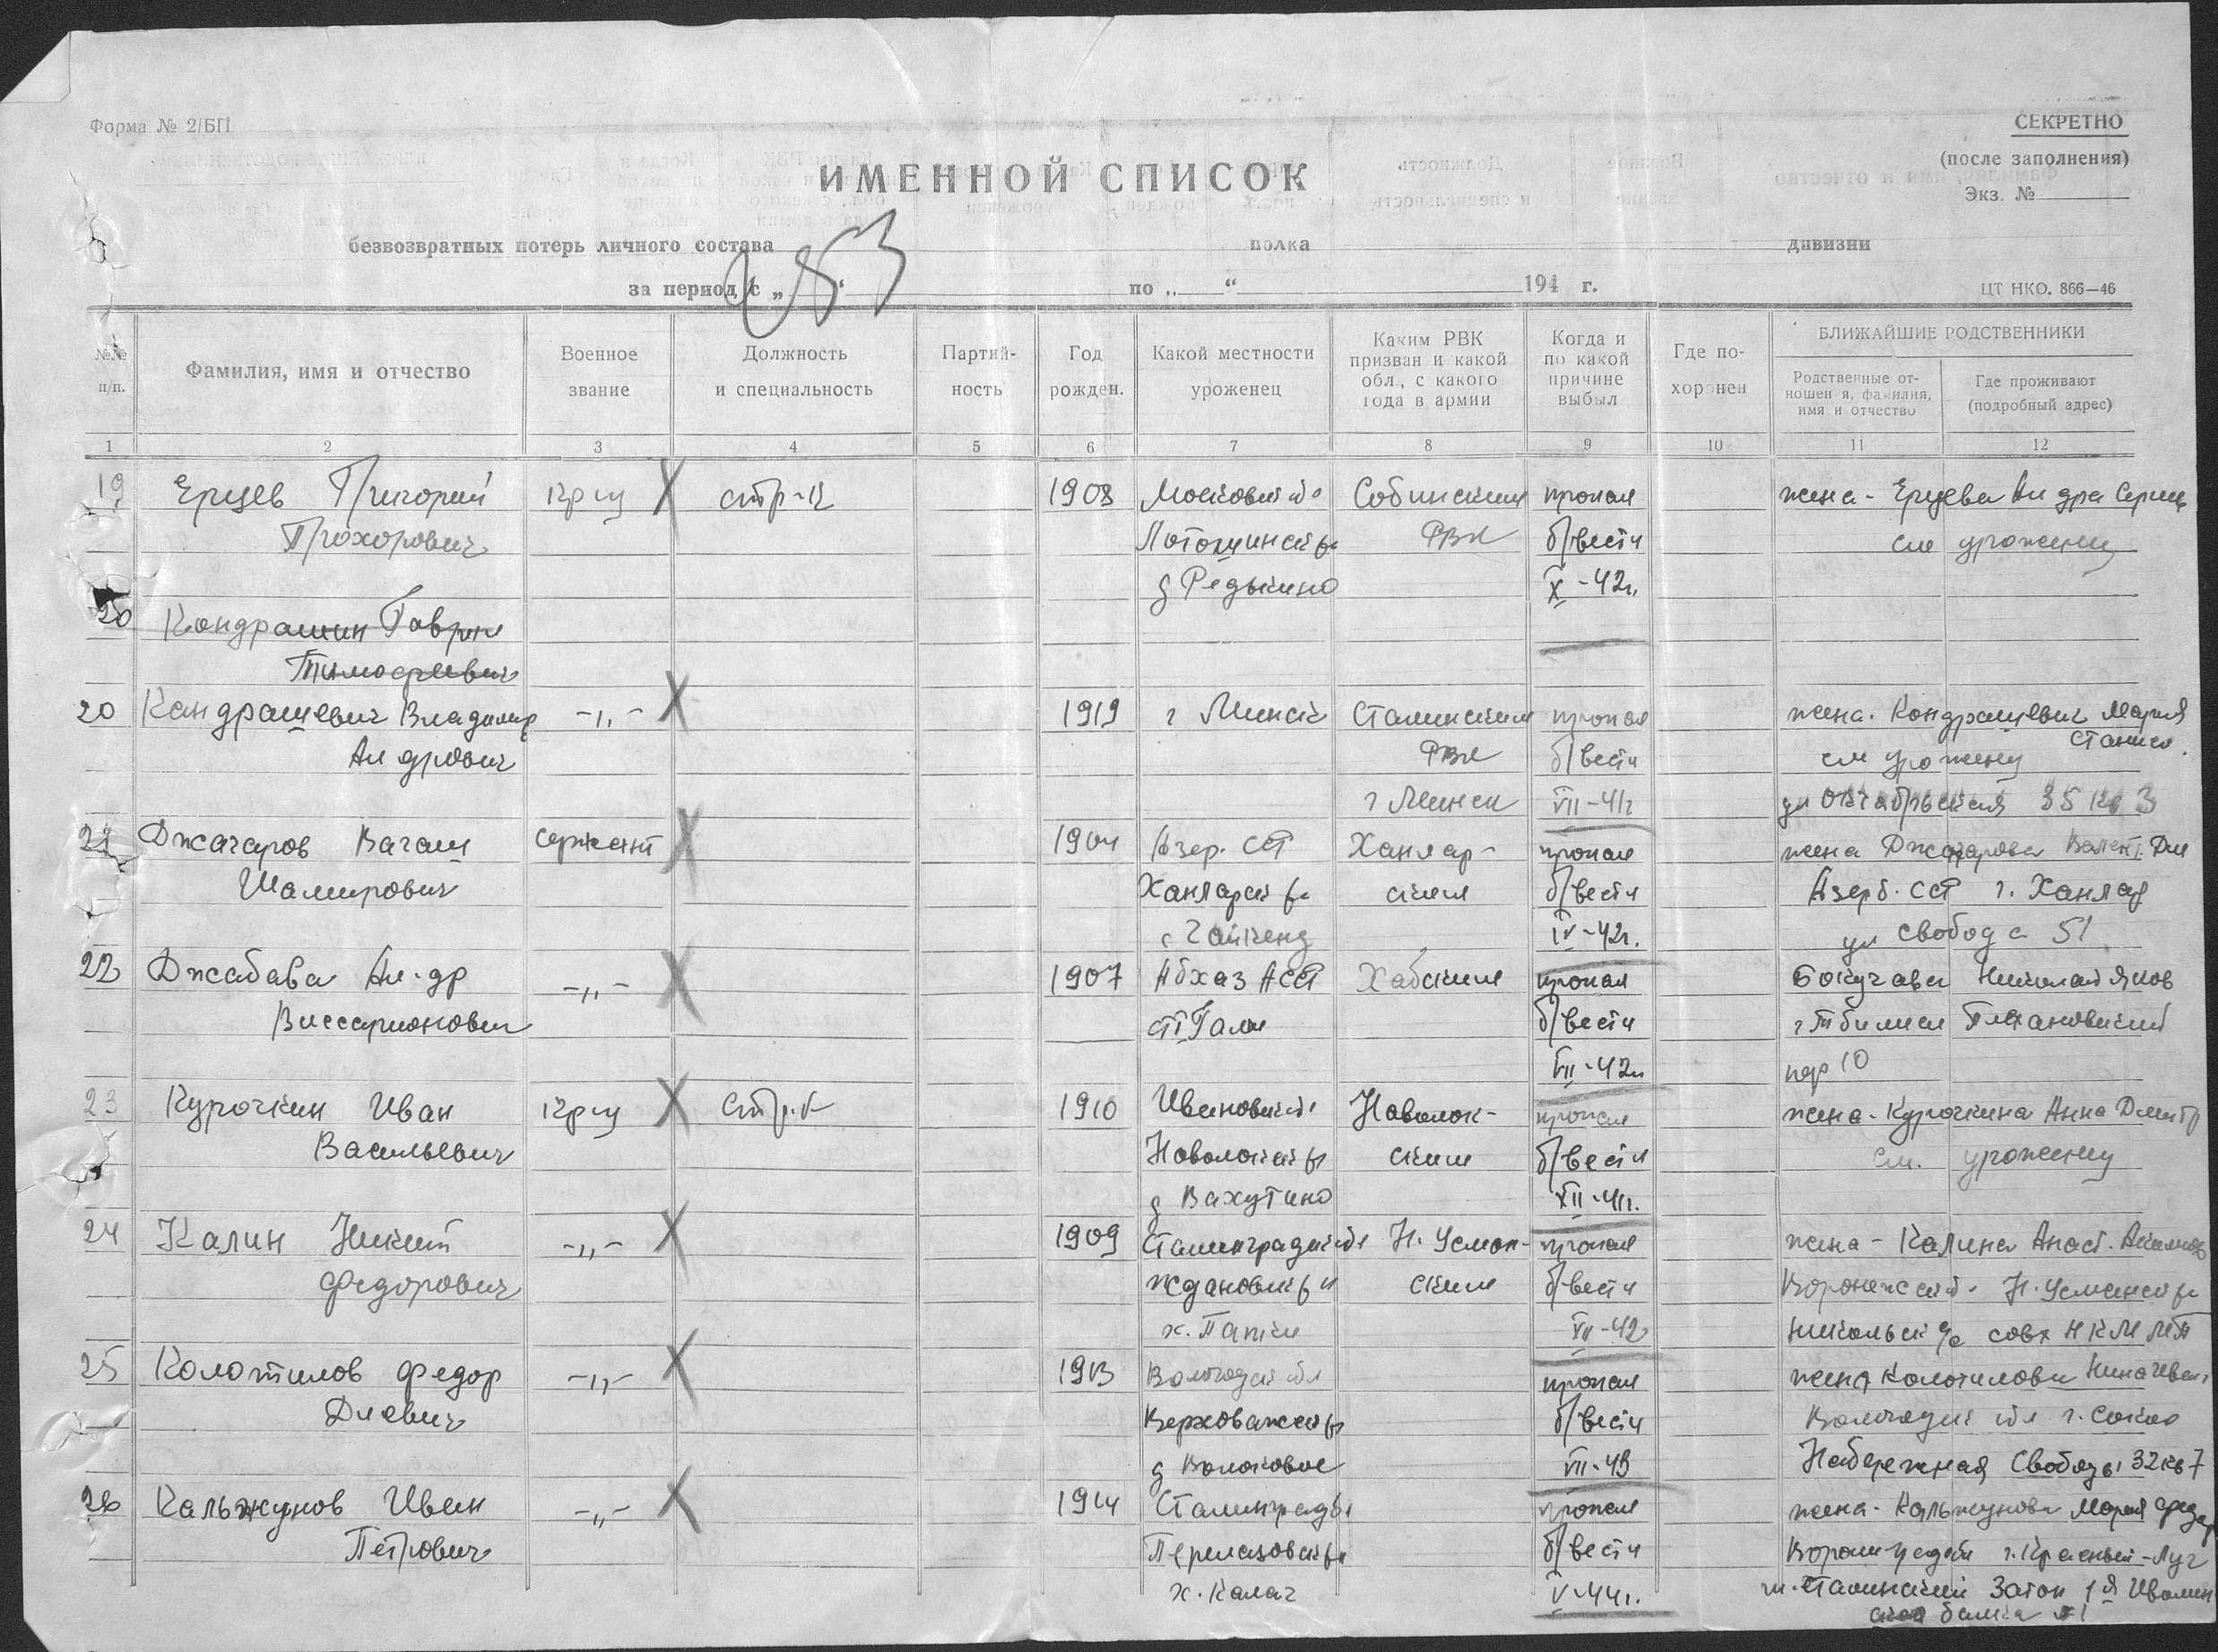 Форма № 2/БП
СЕКРЕТНО
(после заполнения)
Экз. №
ИМЕННОЙ СПИСОК
безвозвратных потерь личного состава полка дивизии
за период с „ “ по „ “ 194 г.
ЦТ НКО. 866—46
№№ п/п.
Фамилия, имя и отчество
Военное звание
Должность и специальность
Партий-ность
Год рожден.
Какой местности уроженец
Каким РВК призван и какой обл., с какого года в армии
Когда и по какой причине выбыл
Где по-хоронен
БЛИЖАЙШИЕ РОДСТВЕННИКИ
Родственные от-ношения, фамилия, имя и отчество
Где проживают (подробный адрес)
1 2 3 4 5 6 7 8 9 10 11 12
19 Ерцев Григорий кр-ц стр-к 1908 Московск о Собинским пропал жена - Ерцева
Прохорович РВК б/вести см уроженец
д Редькино X-42г.
20 Кондрашин Гаврил
Тимофеевич
20 Кандрашевич Владимир -„- 1919 г Минск Сталинским пропал жена. Кондрашевич Мария
РВК б/вести см уроженец Станисл.
г Минск VII-41г ул Октябрьская 35 кв 3
21 Джагаров Вагаш сержант 1904 Азер. ССР Ханлар- пропал жена Джагарова Валент.
Шамирович Ханларск р-н ским б/вести Азерб. ССР г. Ханлар
IV-42г. ул Свобод 51
22 Джабава Ал-др -„- 1907 Абхаз АССР пропал Бокучава Николай Яков
Виссарионович ст Гали б/вести г Тбилиси Плехановский
VII-42г пр 10
23 Курочкин Иван кр-ц стр-к 1910 Ивановск Наволок- пропал жена - Курочкина Анна Дмитр
Васильевич ским б/вести см. уроженец
д Вахутино XII-41г.
24 Калин Никит -„- 1909 Сталинградск Н. Усман- пропал жена - Калина Анаст.
Федорович ским б/вести Воронежск Н. Усманск р-н
VII-42 совх
25 Колотилов Федор -„- 1913 Вологодск обл пропал жена Колотилова Нина
б/вести Вологодск обл г. Сокол
VII-43 Набережная Свободы 32 кв 7
26 Кальжунов Иван -„- 1914 пропал жена - Кальжунова Мария Федор
Петрович Перелазовск р-н б/вести г. Красный-Луч
х. Калач V-44г. Затон 1я
балка